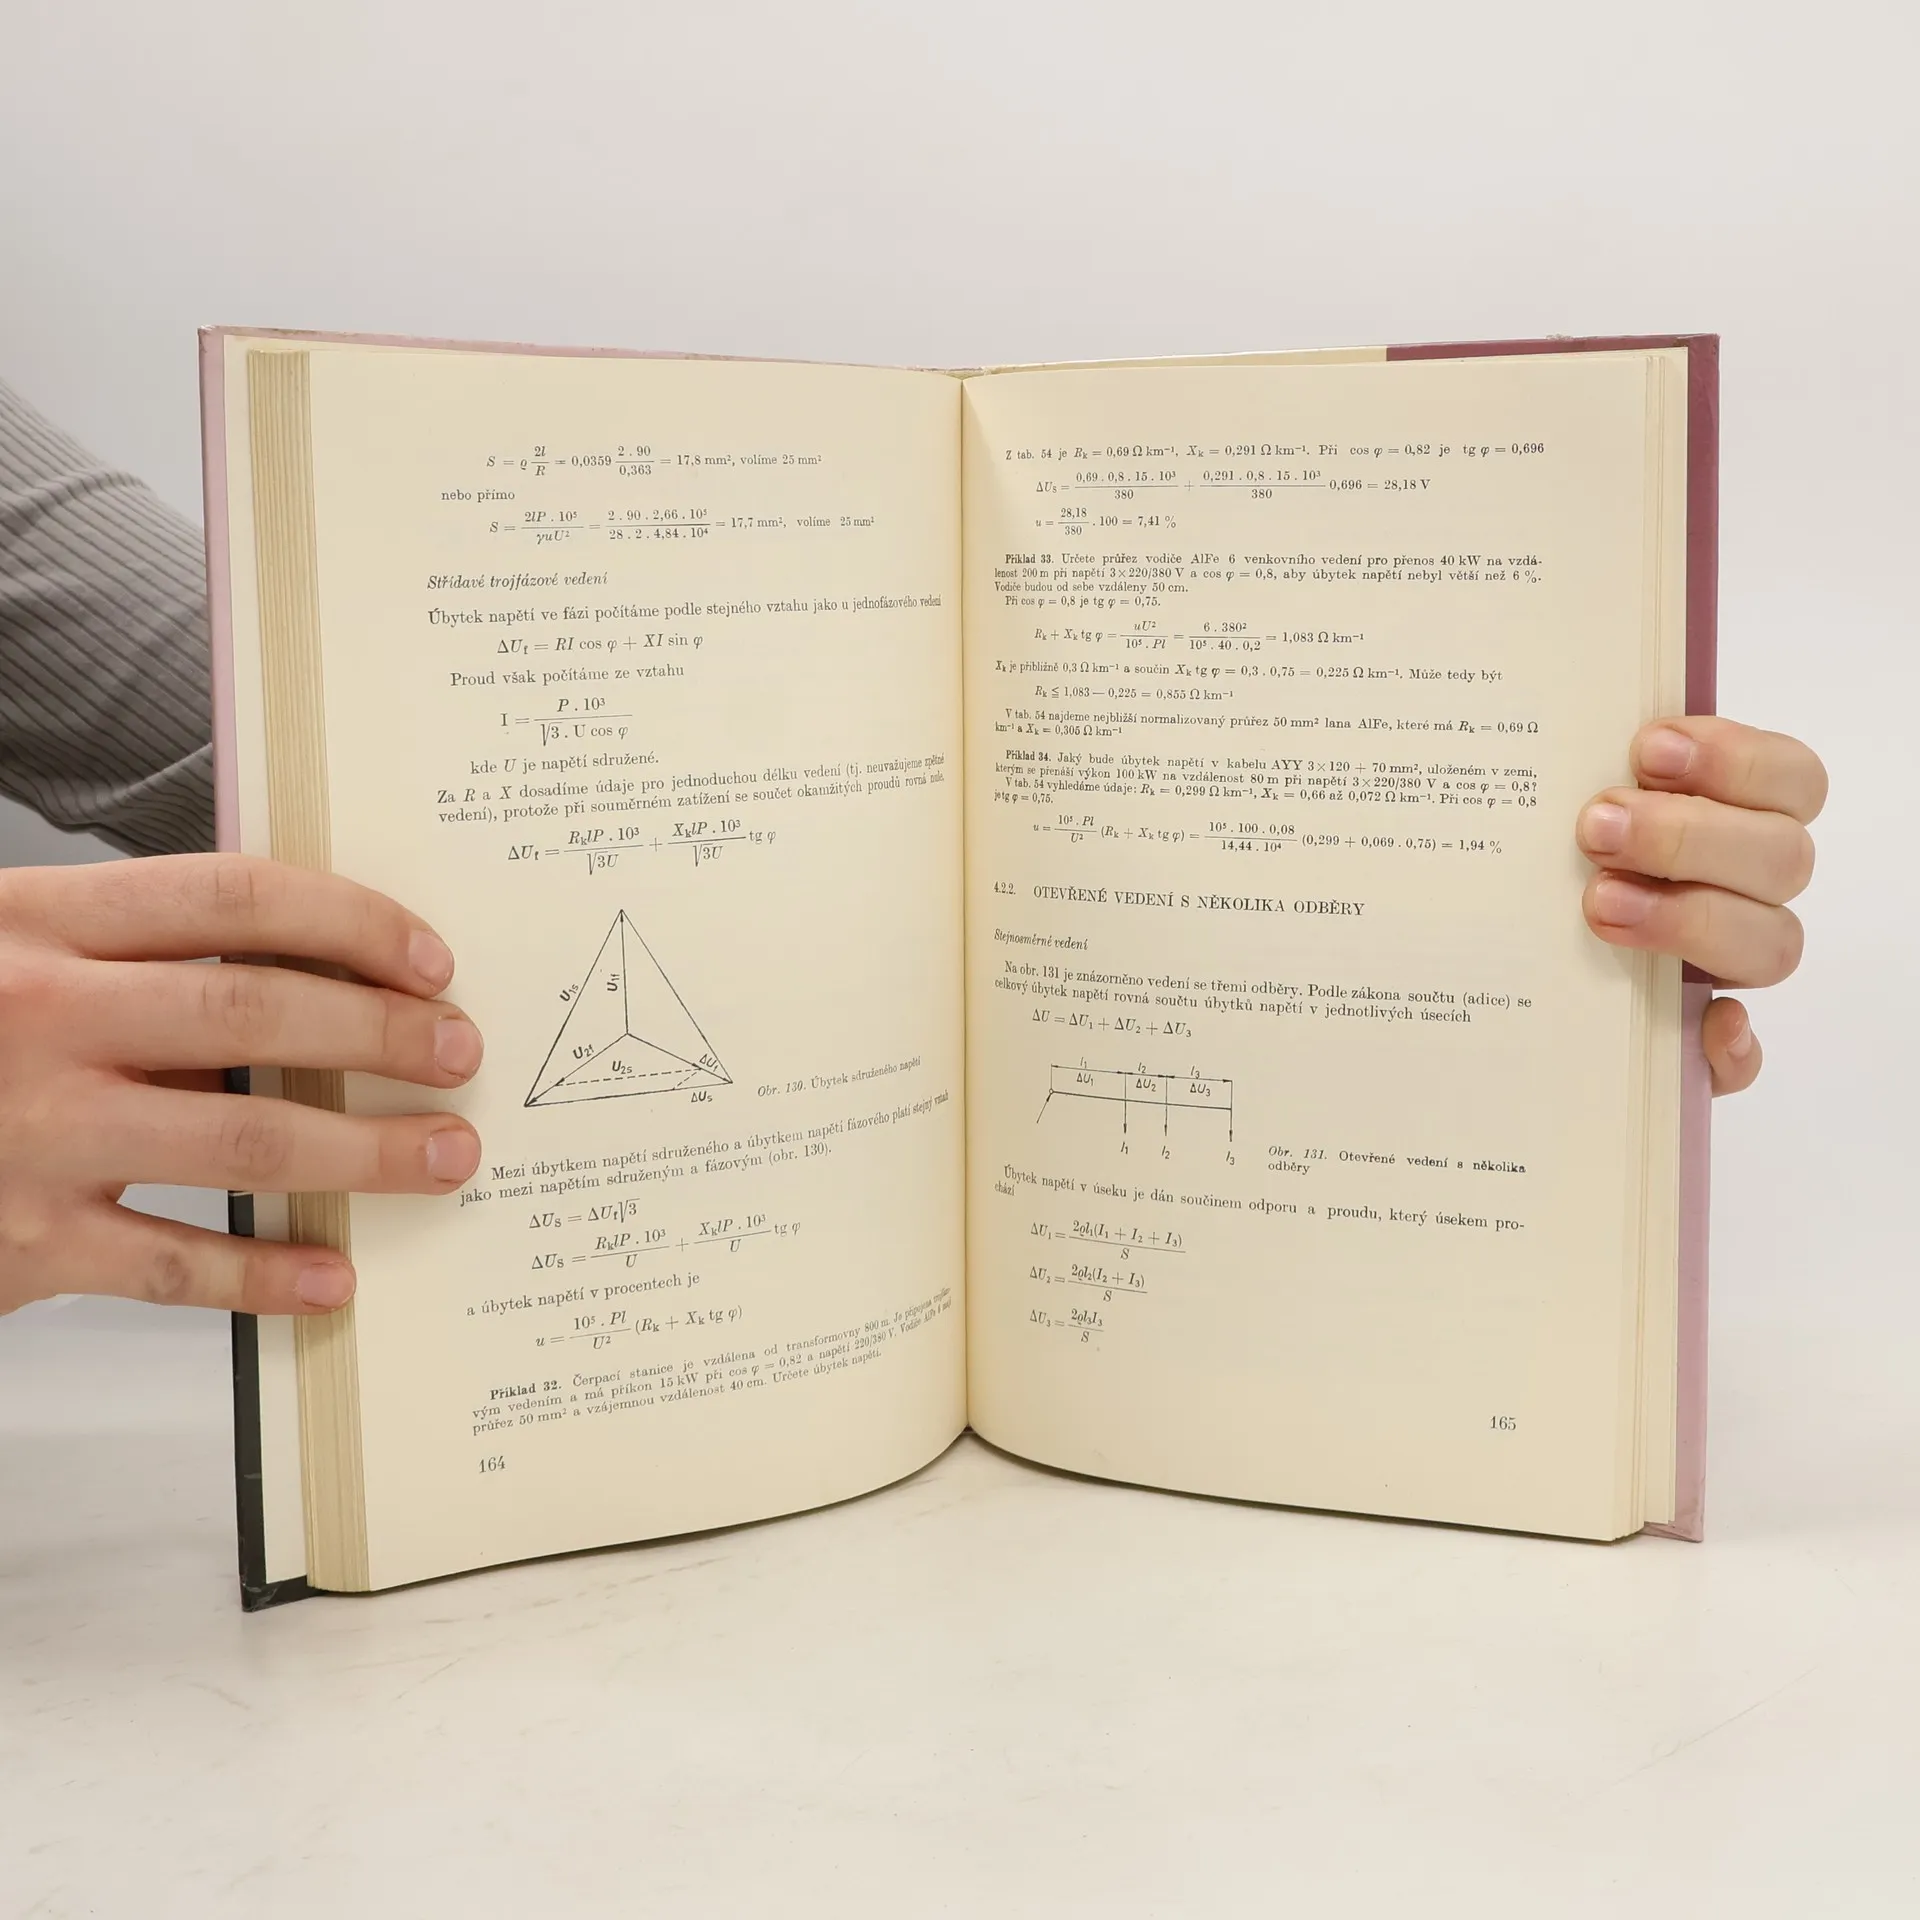 S = ϱ 2l/R = 0,0359 2 . 90/0,363 = 17,8 mm², volíme 25 mm²
nebo přímo
S = 2lP . 10⁵/γuU² = 2 . 90 . 2,66 . 10⁵/28 . 2 . 4,84 . 10⁴ = 17,7 mm², volíme 25 mm²
Střídavé trojfázové vedení
Úbytek napětí ve fázi počítáme podle stejného vztahu jako u jednofázového vedení
ΔUf = RI cos φ + XI sin φ
Proud však počítáme ze vztahu
I = P . 10³/√3 . U cos φ
kde U je napětí sdružené.
Za R a X dosadíme údaje pro jednoduchou délku vedení (tj. neuvažujeme zpětné
vedení), protože při souměrném zatížení se součet okamžitých proudů rovná nule.
ΔUf = RklP . 10³/√3U + XklP . 10³/√3U tg φ
U1s
U1f
U2f
U2s
ΔUf
ΔUs
Obr. 130. Úbytek sdruženého napětí
Mezi úbytkem napětí sdruženého a úbytkem napětí fázového platí stejný vztah
jako mezi napětím sdruženým a fázovým (obr. 130).
ΔUs = ΔUf√3
ΔUs = RklP . 10³/U + XklP . 10³/U tg φ
a úbytek napětí v procentech je
u = 10⁵ . Pl/U² (Rk + Xk tg φ)
Příklad 32. Čerpací stanice je vzdálena od transformovny 800 m. Je připojena trojfázo-
vým vedením a má příkon 15 kW při cos φ = 0,82 a napětí 220/380 V. Vodiče AlFe 6 mají
průřez 50 mm² a vzájemnou vzdálenost 40 cm. Určete úbytek napětí.
164
Z tab. 54 je Rk = 0,69 Ω km⁻¹, Xk = 0,291 Ω km⁻¹. Při cos φ = 0,82 je tg φ = 0,696
ΔUs = 0,69 . 0,8 . 15 . 10³/380 + 0,291 . 0,8 . 15 . 10³/380 0,696 = 28,18 V
u = 28,18/380 . 100 = 7,41 %
Příklad 33. Určete průřez vodiče AlFe 6 venkovního vedení pro přenos 40 kW na vzdá-
lenost 200 m při napětí 3×220/380 V a cos φ = 0,8, aby úbytek napětí nebyl větší než 6 %.
Vodiče budou od sebe vzdáleny 50 cm.
Při cos φ = 0,8 je tg φ = 0,75.
Rk + Xk tg φ = uU²/10⁵ . Pl = 6 . 380²/10⁵ . 40 . 0,2 = 1,083 Ω km⁻¹
Xk je přibližně 0,3 Ω km⁻¹ a součin Xk tg φ = 0,3 . 0,75 = 0,225 Ω km⁻¹. Může tedy být
Rk ≦ 1,083 — 0,225 = 0,855 Ω km⁻¹
V tab. 54 najdeme nejbližší normalizovaný průřez 50 mm² lana AlFe, které má Rk = 0,69 Ω
km⁻¹ a Xk = 0,305 Ω km⁻¹
Příklad 34. Jaký bude úbytek napětí v kabelu AYY 3×120 + 70 mm², uloženém v zemi,
kterým se přenáší výkon 100 kW na vzdálenost 80 m při napětí 3×220/380 V a cos φ = 0,8?
V tab. 54 vyhledáme údaje: Rk = 0,299 Ω km⁻¹, Xk = 0,66 až 0,072 Ω km⁻¹. Při cos φ = 0,8
je tg φ = 0,75.
u = 10⁵ . Pl/U² (Rk + Xk tg φ) = 10⁵ . 100 . 0,08/14,44 . 10⁴ (0,299 + 0,069 . 0,75) = 1,94 %
4.2.2. OTEVŘENÉ VEDENÍ S NĚKOLIKA ODBĚRY
Stejnosměrné vedení
Na obr. 131 je znázorněno vedení se třemi odběry. Podle zákona součtu (adice) se
celkový úbytek napětí rovná součtu úbytků napětí v jednotlivých úsecích
ΔU = ΔU₁ + ΔU₂ + ΔU₃
l₁ l₂ l₃
ΔU₁ ΔU₂ ΔU₃
I₁ I₂ I₃
Obr. 131. Otevřené vedení s několika
odběry
Úbytek napětí v úseku je dán součinem odporu a proudu, který úsekem pro-
chází
ΔU₁ = 2ϱl₁(I₁ + I₂ + I₃)/S
ΔU₂ = 2ϱl₂(I₂ + I₃)/S
ΔU₃ = 2ϱl₃I₃/S
165